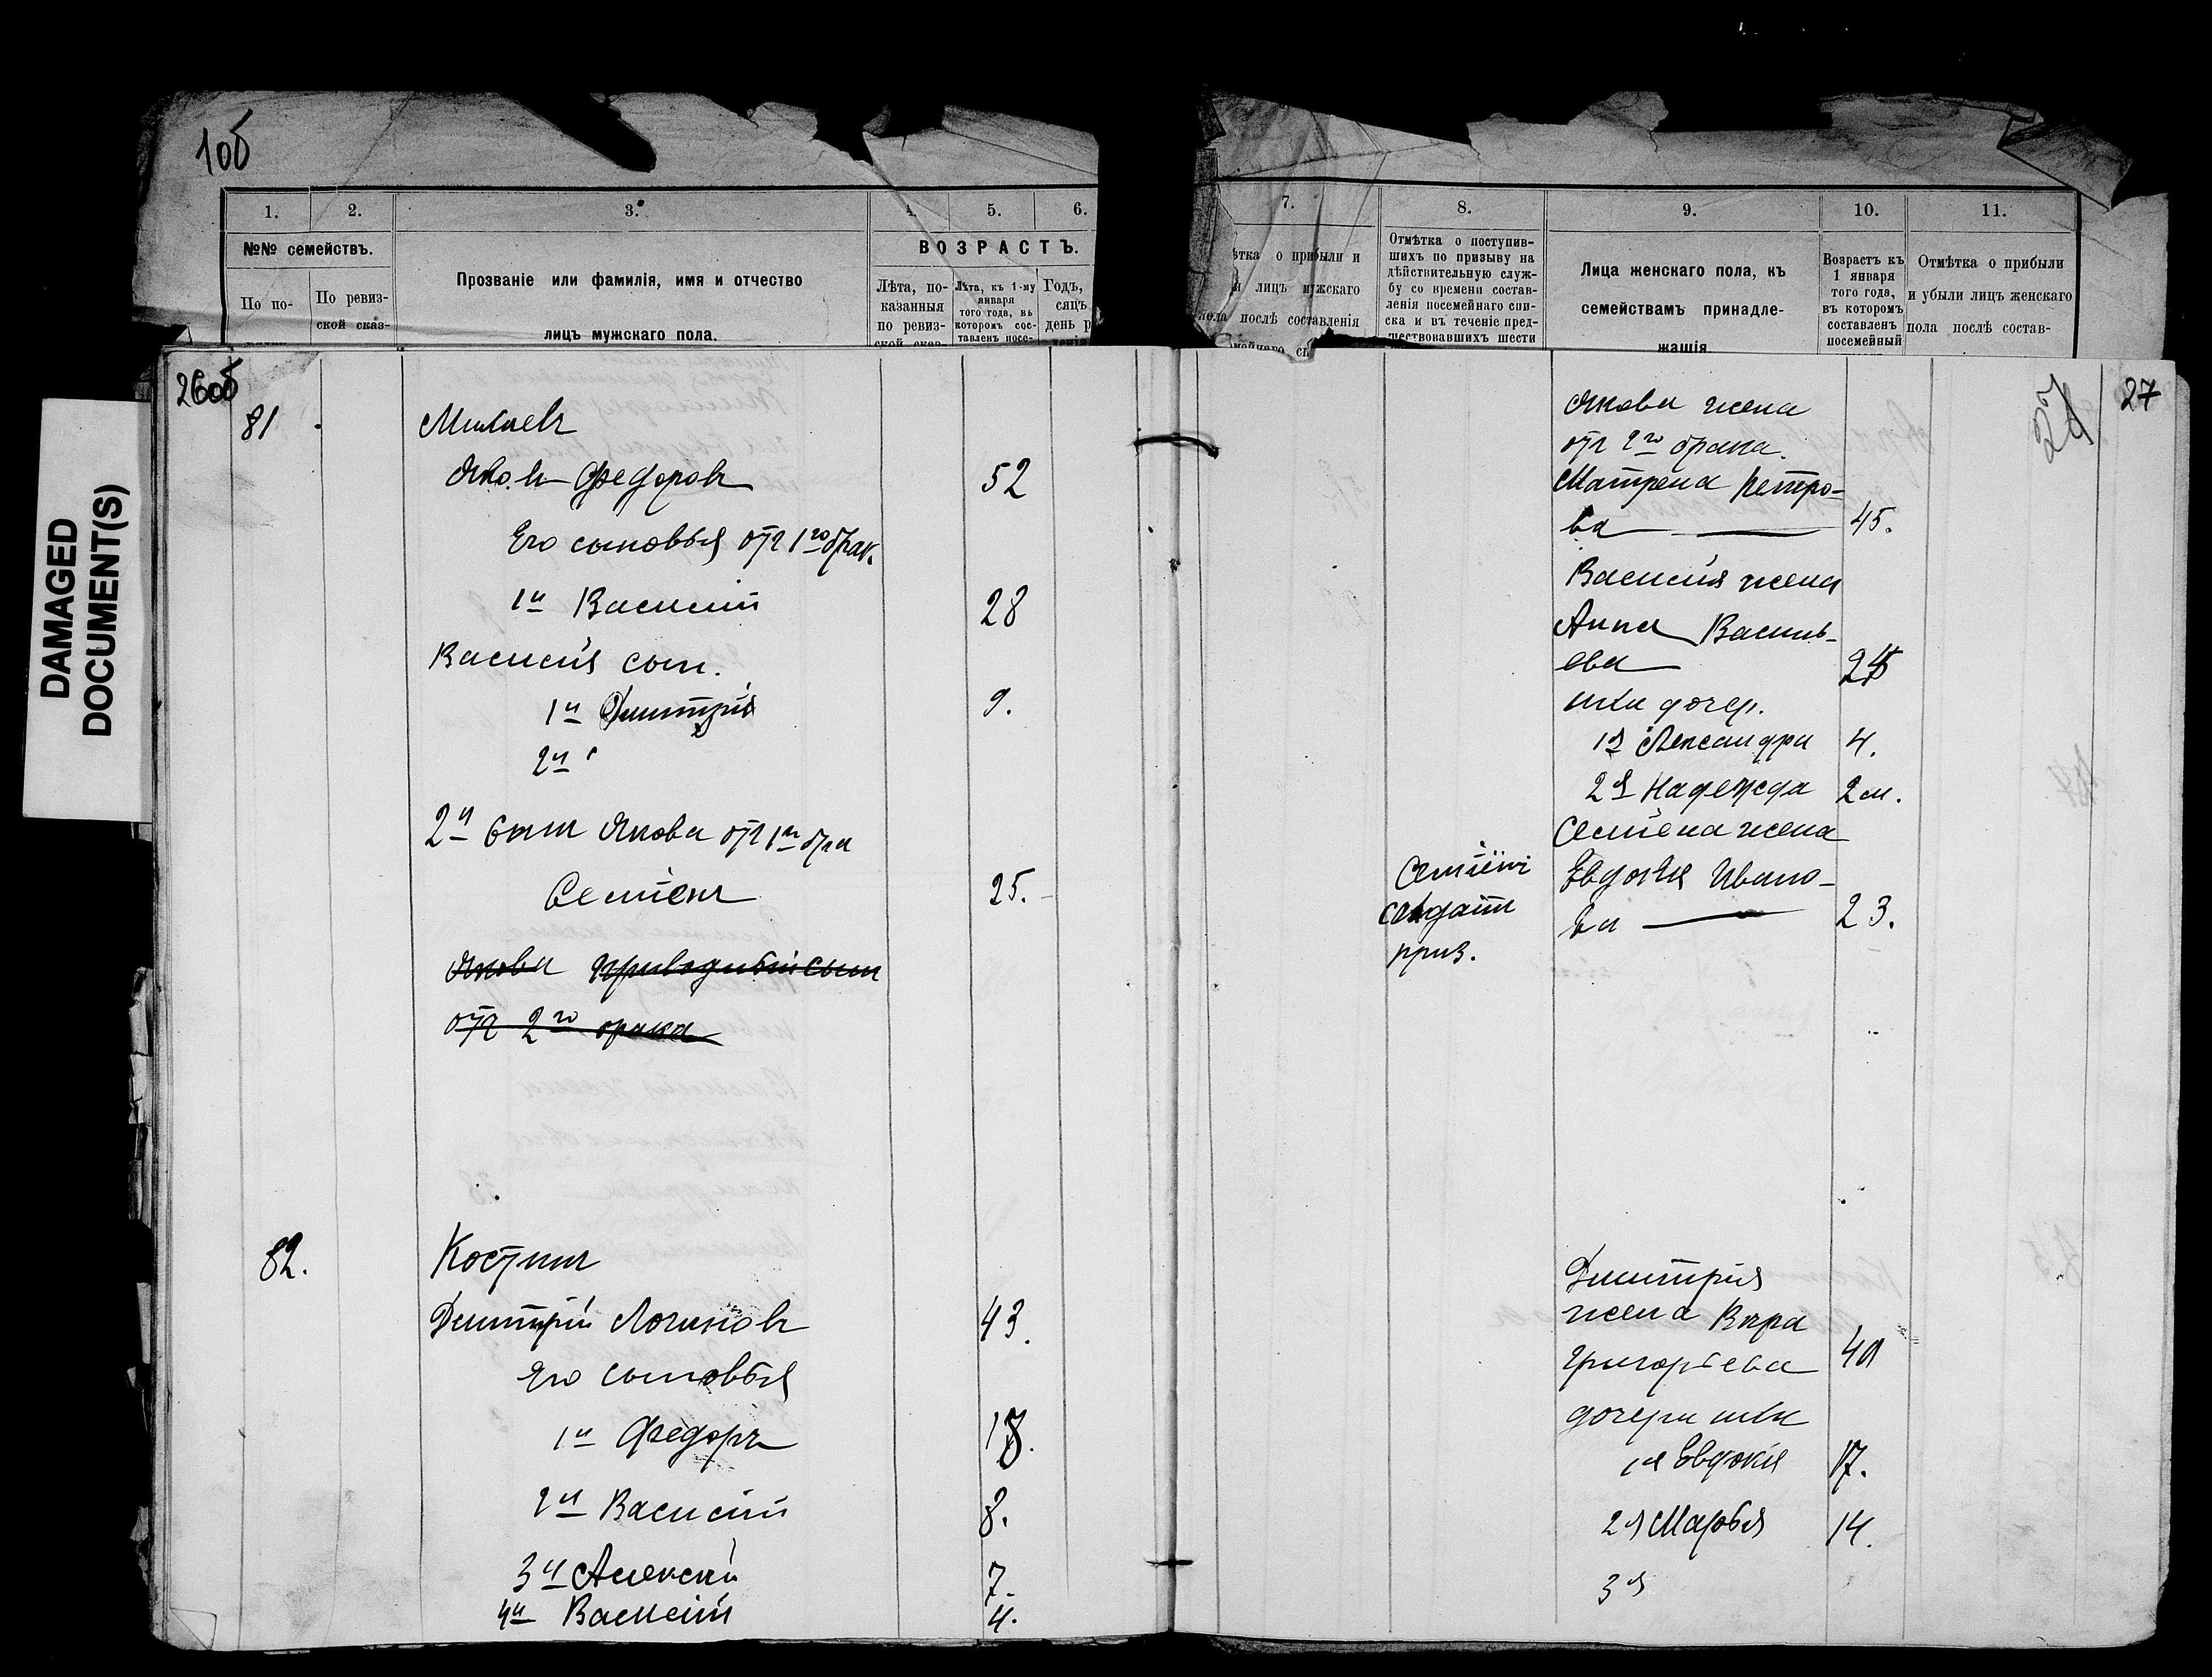 10б
1.
2.
3.
4.
5.
6.
№№ семействъ.
По по-
По ревиз-
ской сказ-
Прозваніе или фамилія, имя и отчество
лицъ мужскаго пола.
ВОЗРАСТЪ.
Лѣта, по-
казанныя
по ревиз-
ской сказ-
Лѣта, къ 1-му
января
того года, въ
которомъ сос-
тавленъ посе-
Годъ,
сяцъ
день р
7.
8.
9.
10.
11.
ѣтка о прибыли и
лицъ мужскаго
пола послѣ составленія
Отмѣтка о поступив-
шихъ по призыву на
дѣйствительную служ-
бу со времени состав-
ленія посемейнаго спи-
ска и въ теченіе пред-
шествовавшихъ шести
Лица женскаго пола, къ
семействамъ принадле-
жащія
Возрастъ къ
1 января
того года,
въ которомъ
составленъ
посемейный
Отмѣтка о прибыли
и убыли лицъ женскаго
пола послѣ состав-
DAMAGED
DOCUMENT(S)
26об
81
Федоровъ 52
Его сыновья отъ 1го брак.
1й Василій 28
Василія сын.
1й Димитрій 9.
2й
2й сынъ Якова отъ 1го бра
Семёнъ 25.
Якова сынъ
отъ 2го брака
82.
Костинъ
Димитрій Логиновъ 43.
Его сыновья
1й Федоръ
2й Василій 8.
3й Алексѣй 7.
4й Василій 4.
27
27
Якова жена
отъ 2го брака.
Матрена Петро-
ва 45.
Василія жена
Анна Василь-
ева
ихъ дочер.
1я Александра 4.
2я Надежда 2 м.
Семёна жена
Евдокія Ивано-
ва 23.
Семёнъ
солдатъ
приз.
Димитрія
жена Вѣра
Григорьева 40
дочери ихъ
1я Евдокія 17.
2я Марья 14.
3я